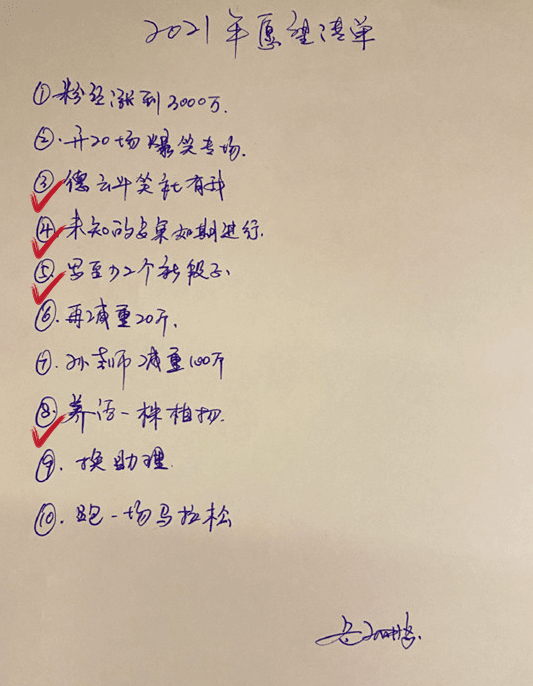 2021年愿望清单
①粉丝涨到3000万.
②.开20场爆笑专场.
③德云斗笑社有我
④.未知的专案如期进行.
⑤.写至少2个新段子.
⑥.再减重20斤.
⑦.孙老师减重100斤
⑧.养活一株植物.
⑨.换助理.
⑩.跑一场马拉松
岳云鹏.